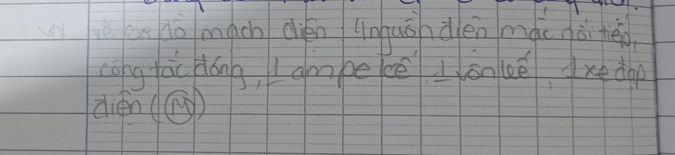 vẽ sơ đồ mạch điện 4 nguồn điện mắc nối tiếp,
công tắc đóng, 1 ampe kế, 1 vôn kế, 1 xe đạp
điện (M)